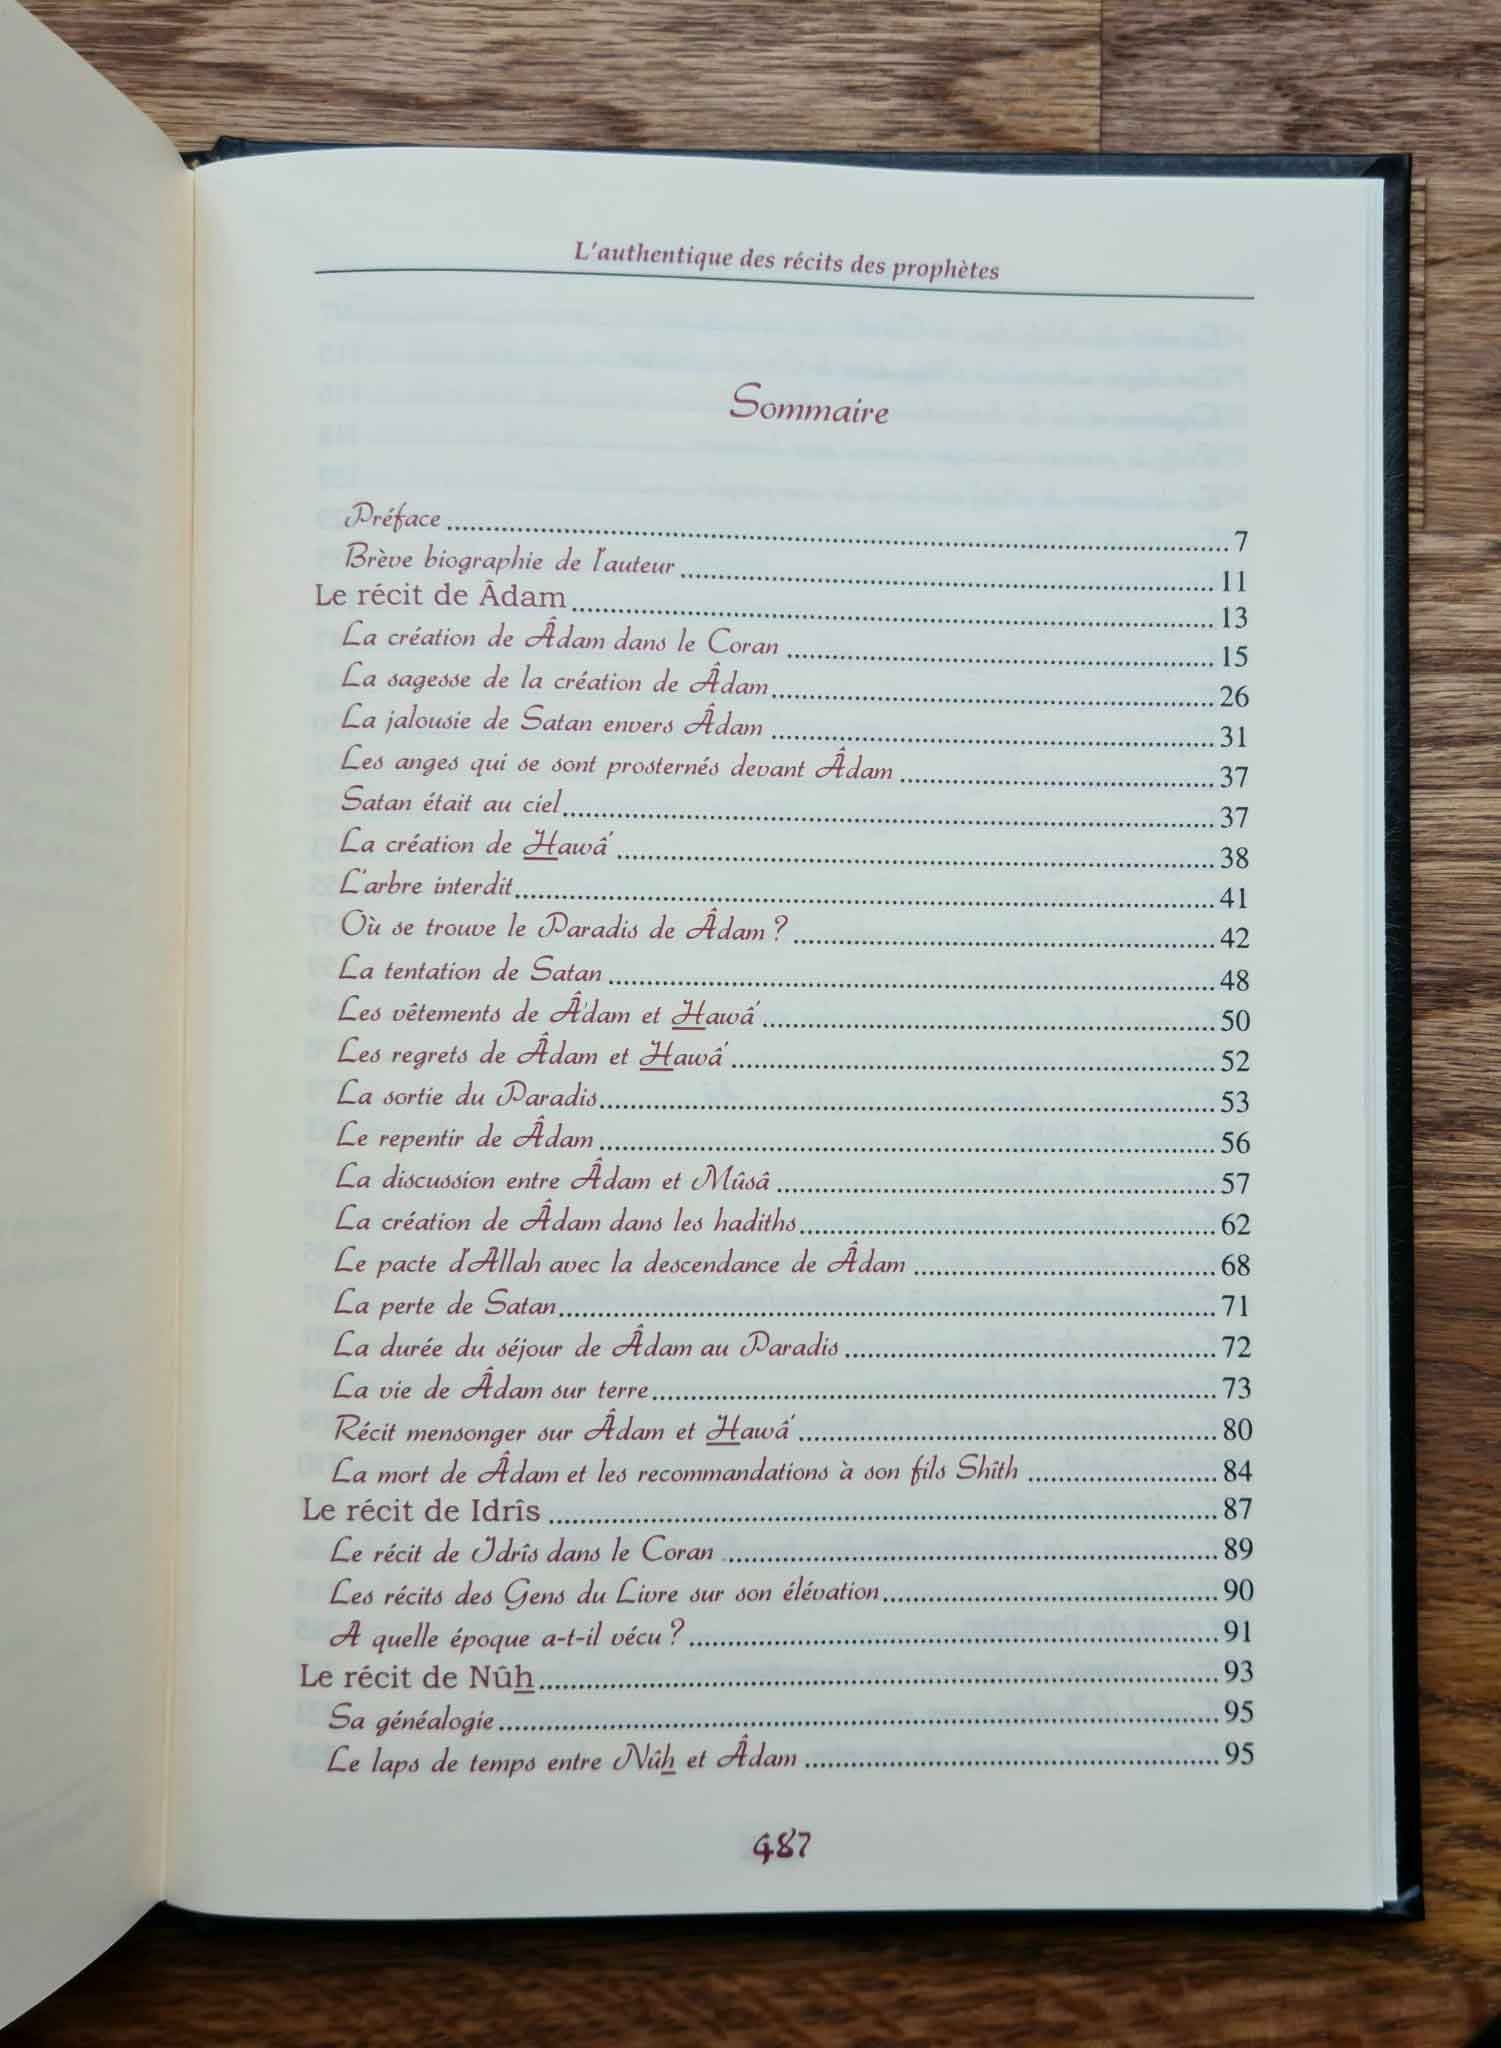 L'authentique des récits des prophètes
Sommaire
Préface ........ 7
Brève biographie de l'auteur ........ 11
Le récit de Âdam ........ 13
La création de Âdam dans le Coran ........ 15
La sagesse de la création de Âdam ........ 26
La jalousie de Satan envers Âdam ........ 31
Les anges qui se sont prosternés devant Âdam ........ 37
Satan était au ciel ........ 37
La création de Hawâ' ........ 38
L'arbre interdit ........ 41
Où se trouve le Paradis de Âdam ? ........ 42
La tentation de Satan ........ 48
Les vêtements de Â'dam et Hawâ' ........ 50
Les regrets de Âdam et Hawâ' ........ 52
La sortie du Paradis ........ 53
Le repentir de Âdam ........ 56
La discussion entre Âdam et Mûsâ ........ 57
La création de Âdam dans les hadiths ........ 62
Le pacte d'Allah avec la descendance de Âdam ........ 68
La perte de Satan ........ 71
La durée du séjour de Âdam au Paradis ........ 72
La vie de Âdam sur terre ........ 73
Récit mensonger sur Âdam et Hawâ' ........ 80
La mort de Âdam et les recommandations à son fils Shîth ........ 84
Le récit de Idrîs ........ 87
Le récit de Idrîs dans le Coran ........ 89
Les récits des Gens du Livre sur son élévation ........ 90
A quelle époque a-t-il vécu ? ........ 91
Le récit de Nûh ........ 93
Sa généalogie ........ 95
Le laps de temps entre Nûh et Âdam ........ 95
487